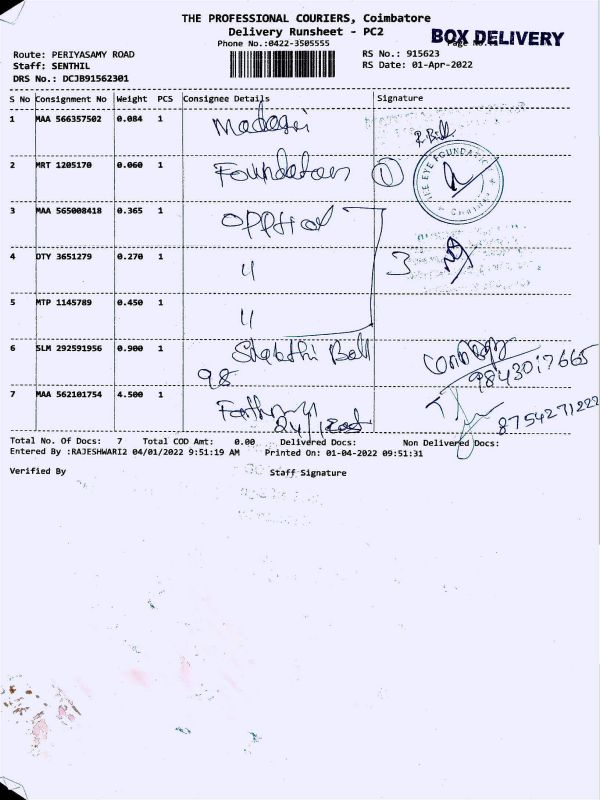 THE PROFESSIONAL COURIERS, Coimbatore
Delivery Runsheet - PC2
BOX DELIVERY
Phone No.:0422-3505555
Route: PERIYASAMY ROAD
RS No.: 915623
Staff: SENTHIL
RS Date: 01-Apr-2022
DRS No.: DCJB91562301
S No Consignment No Weight PCS Consignee Details Signature
1 MAA 566357502 0.084 1
2 MRT 1205170 0.060 1 Foundation 1
EYE FOUNDATION
3 MAA 565008418 0.365 1 Opptical
4 DTY 3651279 0.270 1 4 3
5 MTP 1145789 0.450 1 4
6 SLM 292591956 0.900 1 Shakthi Ball
98
9843017665
7 MAA 562101754 4.500 1
8754271222
Total No. Of Docs: 7 Total COD Amt: 0.00 Delivered Docs: Non Delivered Docs:
Entered By :RAJESHWARI2 04/01/2022 9:51:19 AM Printed On: 01-04-2022 09:51:31
Verified By Staff Signature